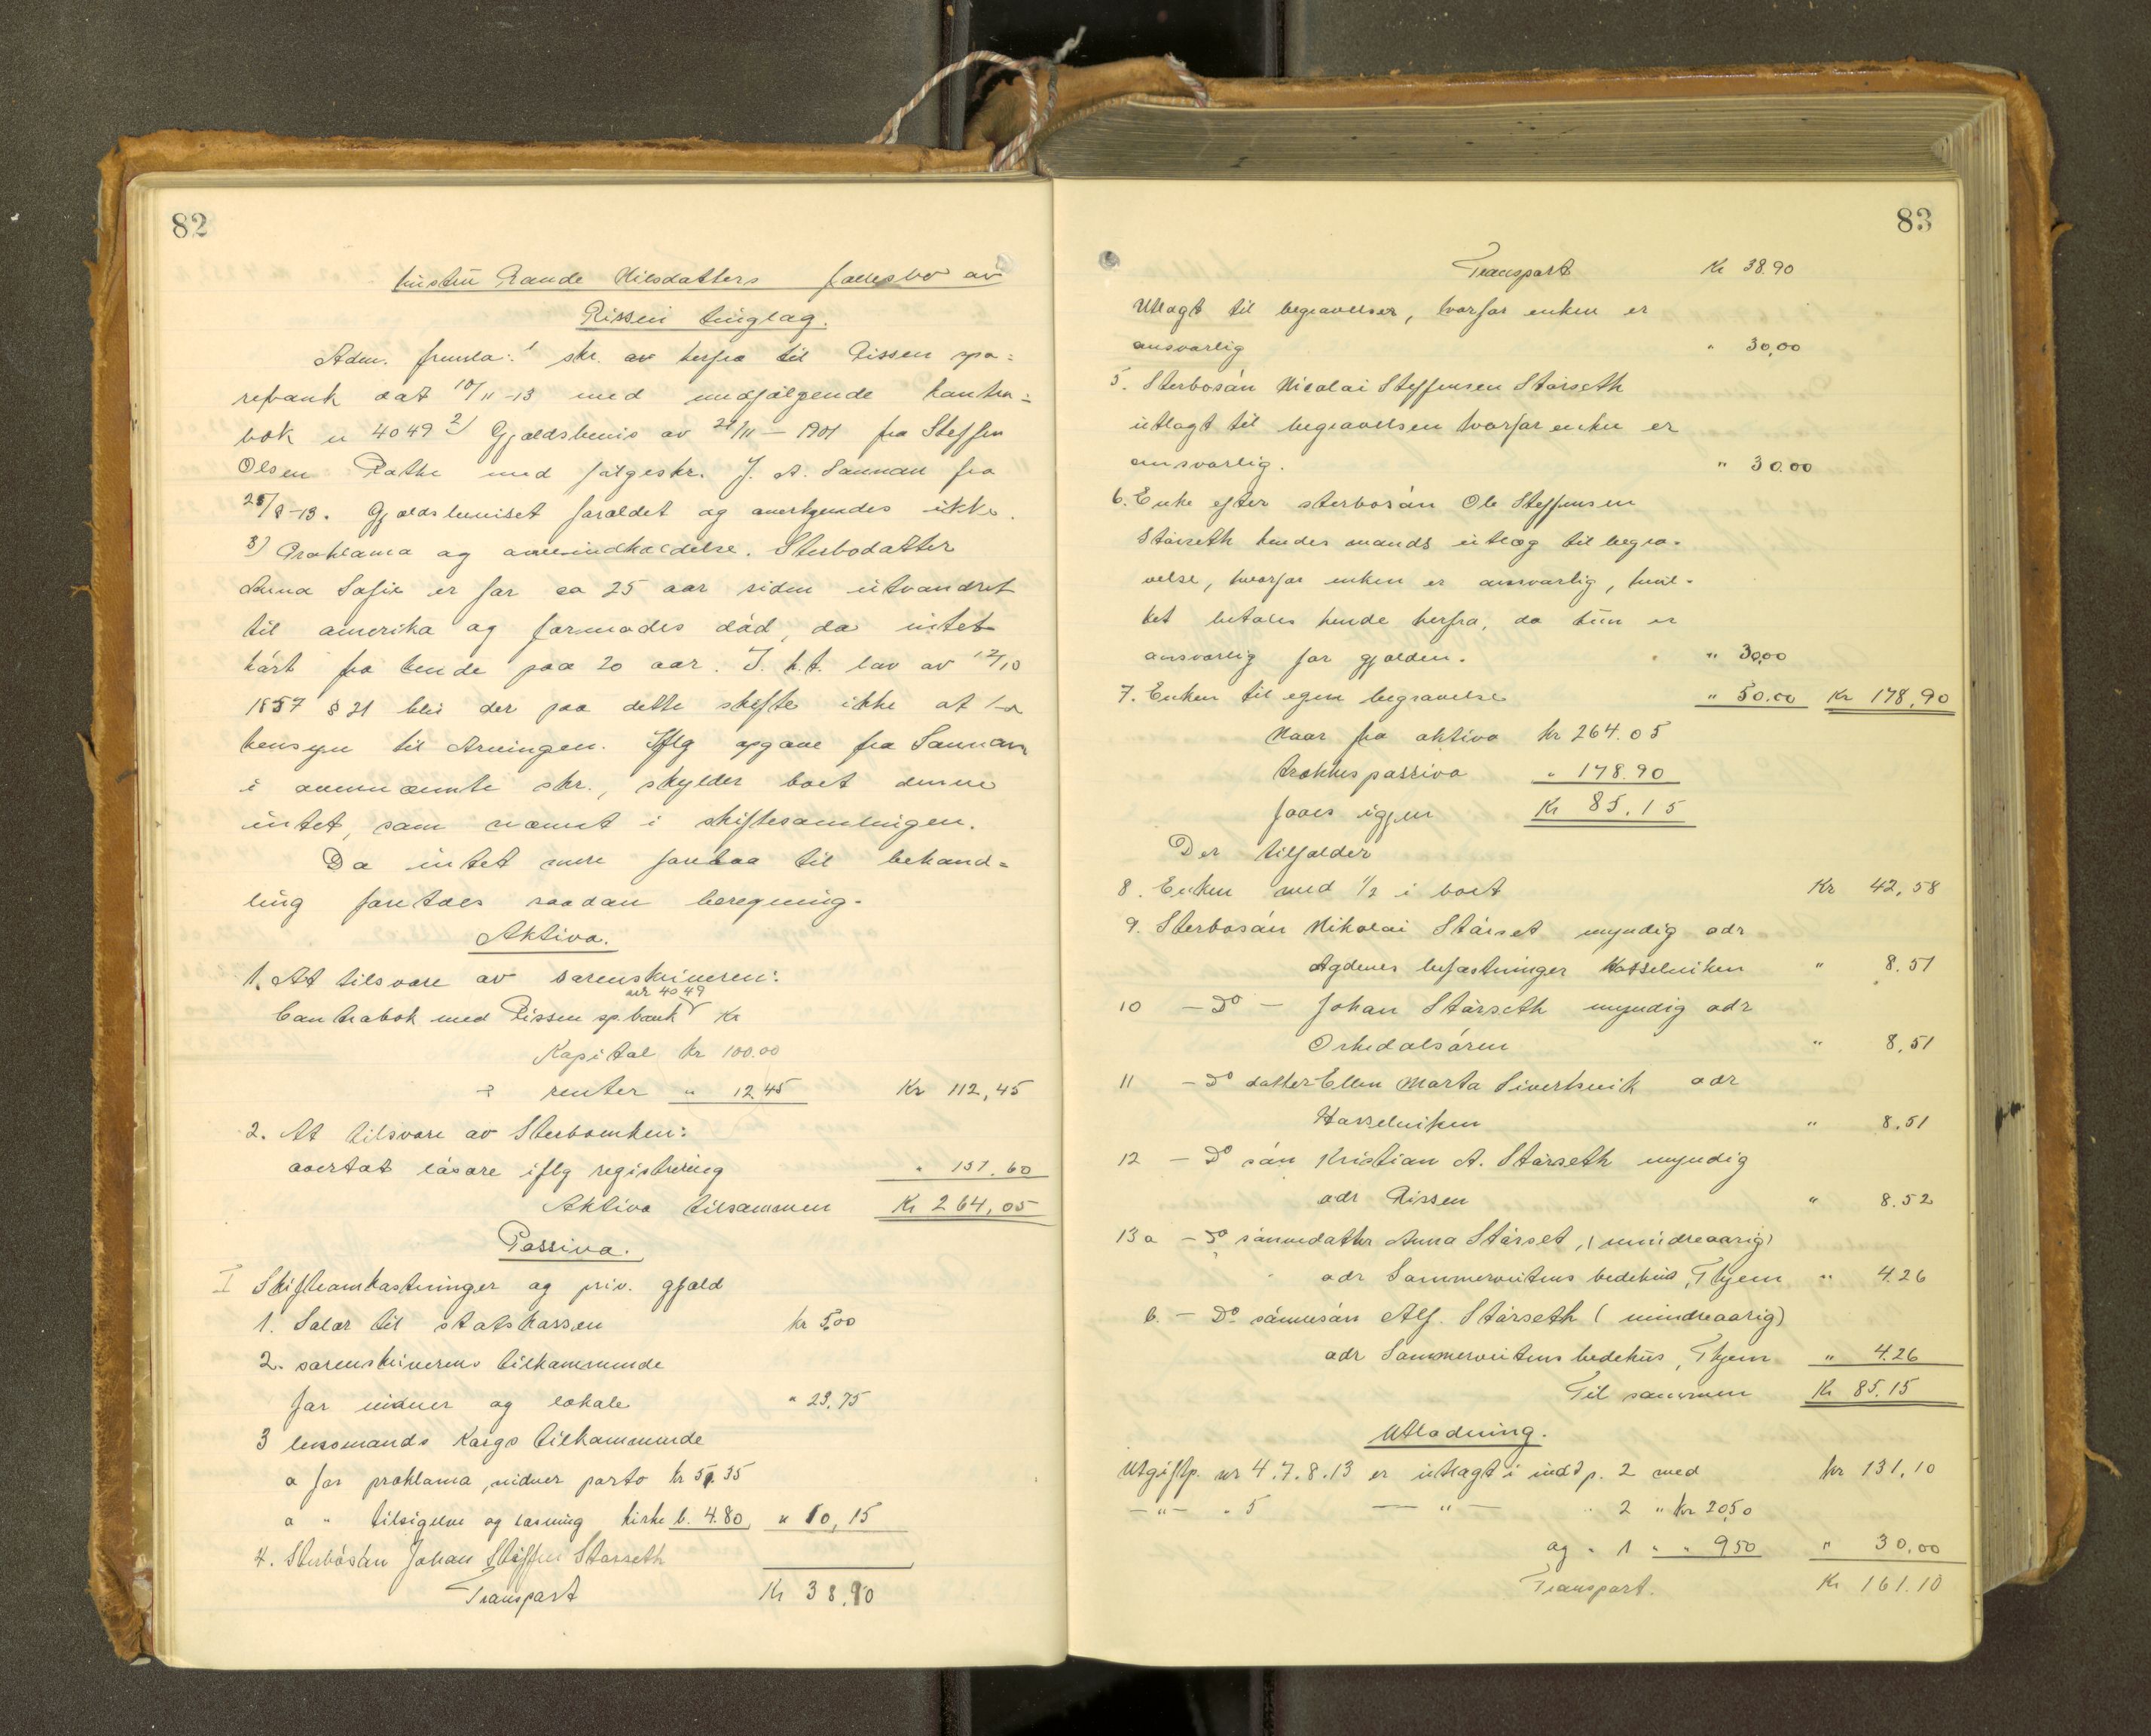 82
hustru Rande Nilsdatters fællesbo av
Rissen tinglag.
Adm. fremla: 1 skr. av herfra til Rissen spa=
rebank dat 10/11-13 med medfølgende kontra=
bok n 4049 2) Gjældsbevis av 21/11 - 1901 fra Steffen
Olsen Rathe med følgeskr. J. A. Sannan fra
25/8-13. Gjældsbeviset foraldet og anerkjendes ikke.
3) Proklama og Sterbodatter
Anna Sofie er for ca 25 aar siden utvandret
til amerika og formodes død, da intet
hørt fra hende paa 20 aar. I. h.t. lov av 12/10
1857 § 21 blir der paa dette skifte ikke at ta
hensyn til Arvingen. Iflg opgave fra Sannan
i ovennævnte skr., skylder boet denne
intet, som nævnt i skiftesamlingen.
Da intet mere forelaa til behand=
ling foretoes saadan beregning.
Aktiva.
1. At tilsvare av sorenskriveren:
nr 4049
Contrabok med Rissen sp.bank Kr
Kapital kr 100.00
renter " 12.45 Kr 112,45
2. At tilsvare av Sterboenken:
overtat løsøre iflg registrering " 151.60
Aktiva tilsammen Kr 264,05
Passiva.
I Skifteomkostninger og priv. gjæld
1. Salær til statskassen kr 5,00
2. sorenskriverens tilkommende
for vidner og lokale " 23,75
3 lensmands Kaigs tilkommende
a for proklama, vidner porto kr 5,35
a " tilsigelse og læsning kirke b. 4.80 " 10,15
4. Sterbosøn Johan Steffen Størseth
Transport Kr 38,90
83
Transport Kr 38.90
Utlagt til begravelser, hvorfor enken er
ansvarlig " 30,00
5. Sterbosøn Nicolai Steffensen Størseth
utlagt til begravelsen hvorfor enken er
ansvarlig. " 30.00
6. Enke efter sterbosøn Ole Steffensen
Størseth hendes mands utlæg til begra-
velse, hvorfor enken er ansvarlig, hvil-
ket betales hende herfra, da hun er
ansvarlig for gjælden. " 30,00
7. Enken til egen begravelse " 50.00 Kr 178,90
Naar fra aktiva kr 264.05
trækkes passiva " 178.90
faaes igjen Kr 85,15
Der tilfalder
8. Enken med 1/2 i boet Kr 42,58
9. Sterbosøn Nikolai Størset myndig adr
Agdenes befæstninger Hasselviken " 8.51
10 - Do - Johan Størseth myndig adr
Orkedalsøren " 8,51
11 - Do datter Ellen Marta Sivertsvik adr
Hasselviken " 8.51
12 - Do søn Kristian A. Størseth myndig
adr Rissen " 8.52
13 a - Do sønnedatter Anna Størset, (mindreaarig)
adr Sammerveitens bedehus, Thjem " 4.26
b. - Do sønnesøn Alf. Størseth (mindreaarig)
adr Sammerveitens bedehus, Thjem " 4.26
Til sammen Kr 85.15
Utlodning.
Utgiftp. nr 4.7.8.13 er utlagt i indt p. 2 med kr 131,10
- " - " 5 - " - " 2 " kr 20,50
og " 1 " " 9,50 " 30,00
Transport. Kr 161.10